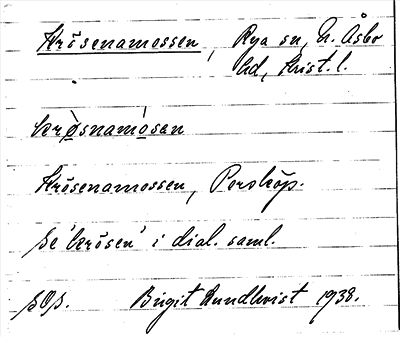 Krösenamossen, Rya sn, N. Åsbo
hd, Krist. l.
krø̀snamósan
Krösenamossen, Perstorp.
se 'krösen' i dial. saml.
sOs. Birgit Lundkvist 1938.